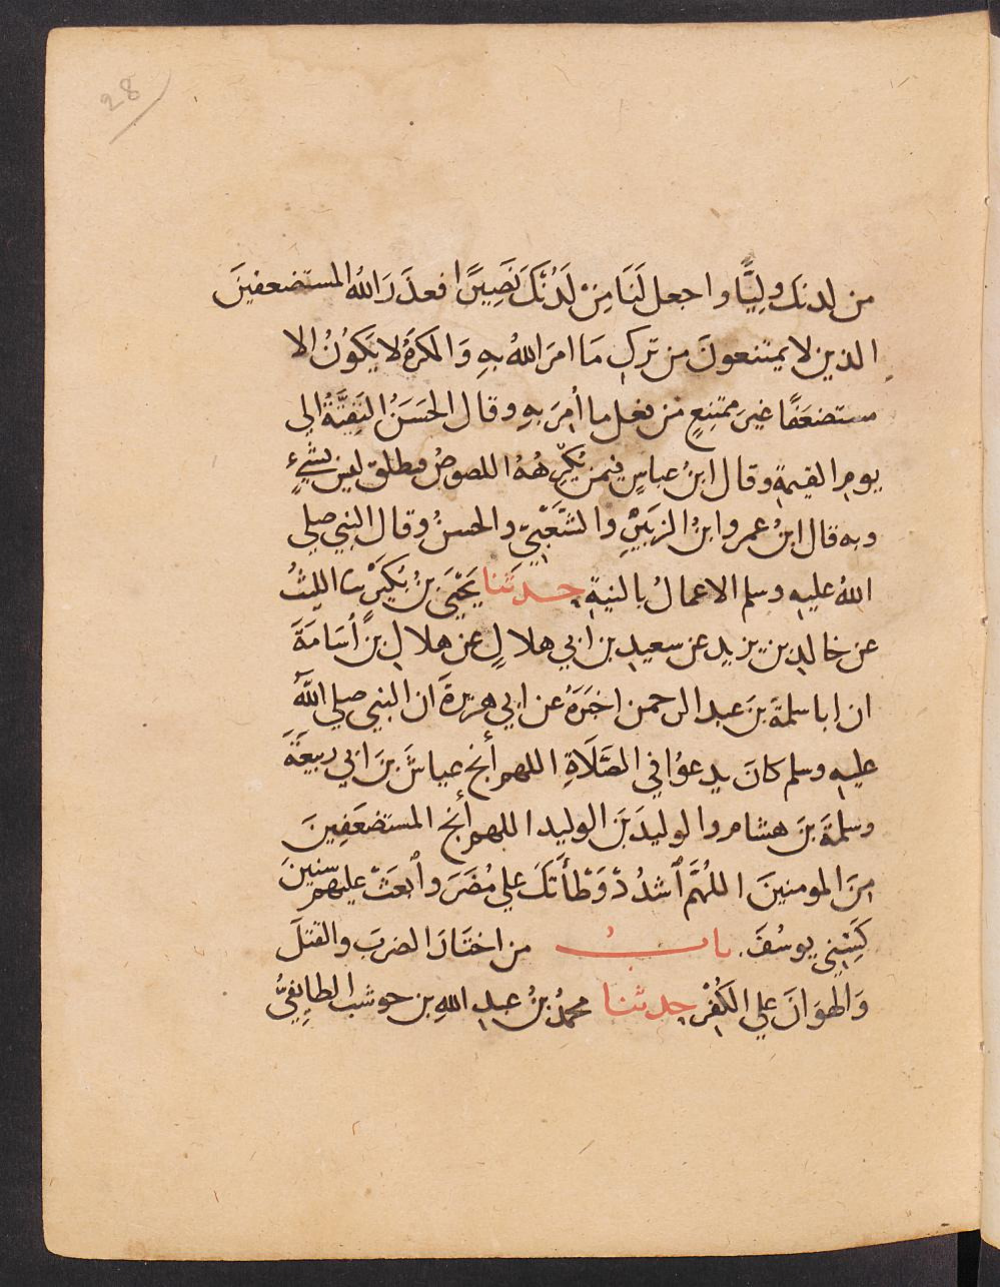 28
من لدنك وليًّا واجعل لَنَا مِنْ لَدُنْكَ نَصِيرًا فعذَرَ اللهُ المستضعفينَ
الذين لا يمتنعونَ من ترك مَا امرَ اللهُ بهِ وَالمكرَهُ لا يَكوُنُ الا
مستضعَفًا غيرَ ممتنِعٍ من فعل ما أُمِرَ بهِ وقال الحَسَنُ التَقِيَّةُ الى
يومِ القيمةِ وقال ابنُ عباسٍ فيمن يُكرِهُهُ اللصوصُ فيطلق ليس بشيءٍ
وبه قال ابنُ عمر وابنُ الزبَيْرِ والشَّعْبِيّ والحسنُ وقال النبي صلى
اللهُ عليه وسلم الاعمالُ بالنيةِ حدثَنا يَحْيَى بنُ بُكَيرٍ ثنا الليثُ
عن خالدِ بن يزيدِ عن سعيدِ بن ابي هلالٍ عن هلالِ بنِ أُسَامَةَ
ان ابا سلمةَ بنَ عبد الرحمن اخبَرَهُ عن ابي هريرةَ ان النبي صلى اللهُ
عليه وسلم كانَ يدعوُا في الصَّلَاةِ اللهم أنج عياشَ بنَ ابي ربيعَةَ
وسلمةَ بنَ هشام والوليدَ بنَ الوليد اللهم أنج المستضعَفِينَ
مِنَ المومنينَ اللهُمَّ ٱشدُدْ وَطْأتَكَ على مُضَرَ وٱبعَثْ عليهم سنينَ
كَسِنِي يوسُفَ. بابُ من اختَارَ الضربَ والقتلَ
وَالهوَانَ على الكُفْرِ حدثنا محمدُ بنُ عبدِ اللهِ بن حوشب الطايِفيُّ